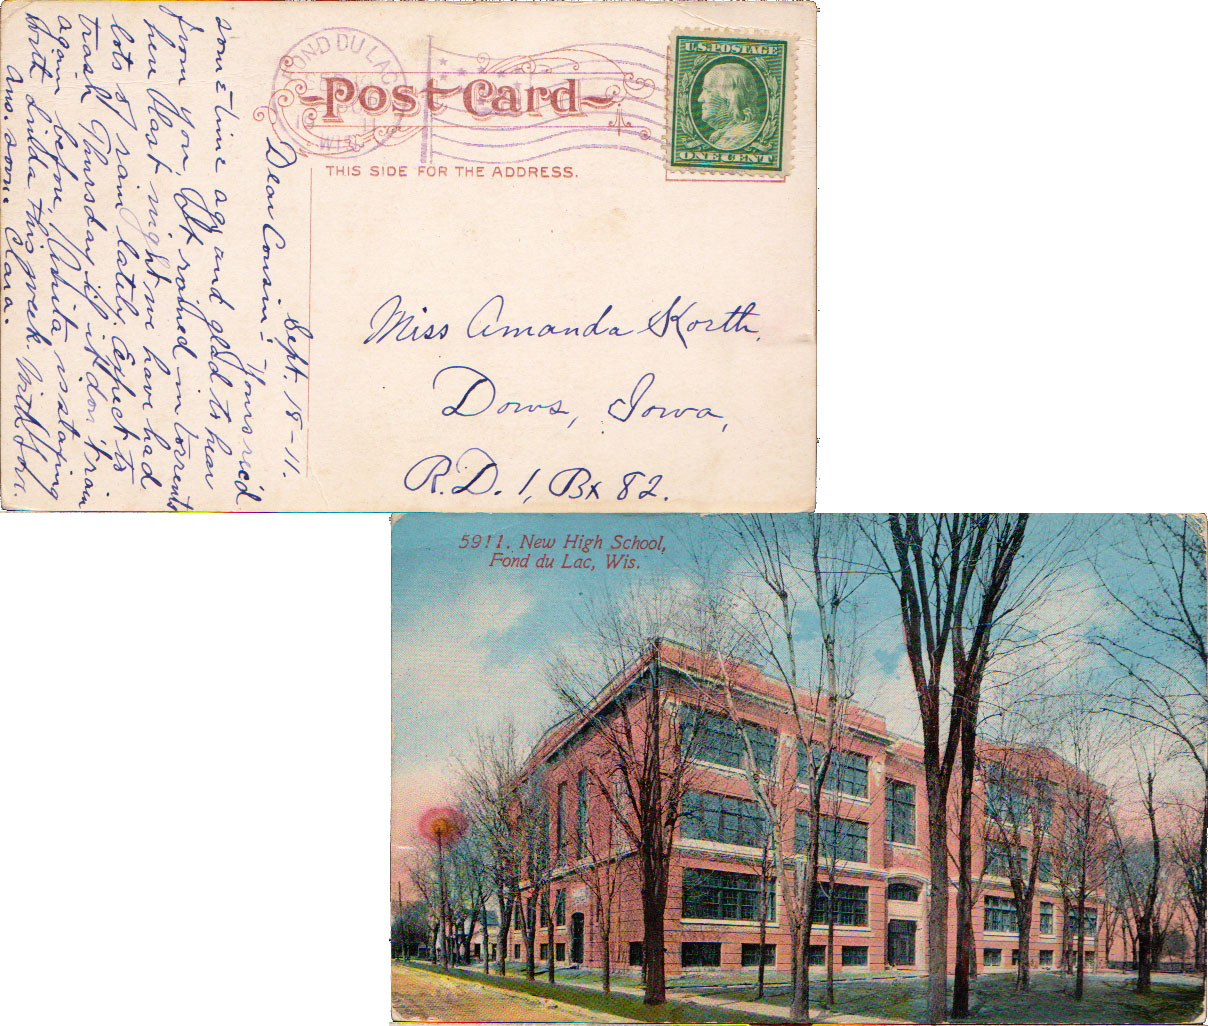 FOND DU LAC
WIS.
U.S. POSTAGE
ONE CENT
Post Card
THIS SIDE FOR THE ADDRESS.
Sept. 18-11.
Dear Cousin:- Yours rec'd
some time ago and glad to hear
from you. It rained in torrents
here last night we have had
lots of rain lately. Expect to
trash Thursday if it don't rain
again before. is staying
with this week. With love.
Ans. soon. Clara.
Miss Amanda Korth.
Dows, Iowa,
R.D. 1, Bx 82.
5911. New High School,
Fond du Lac, Wis.